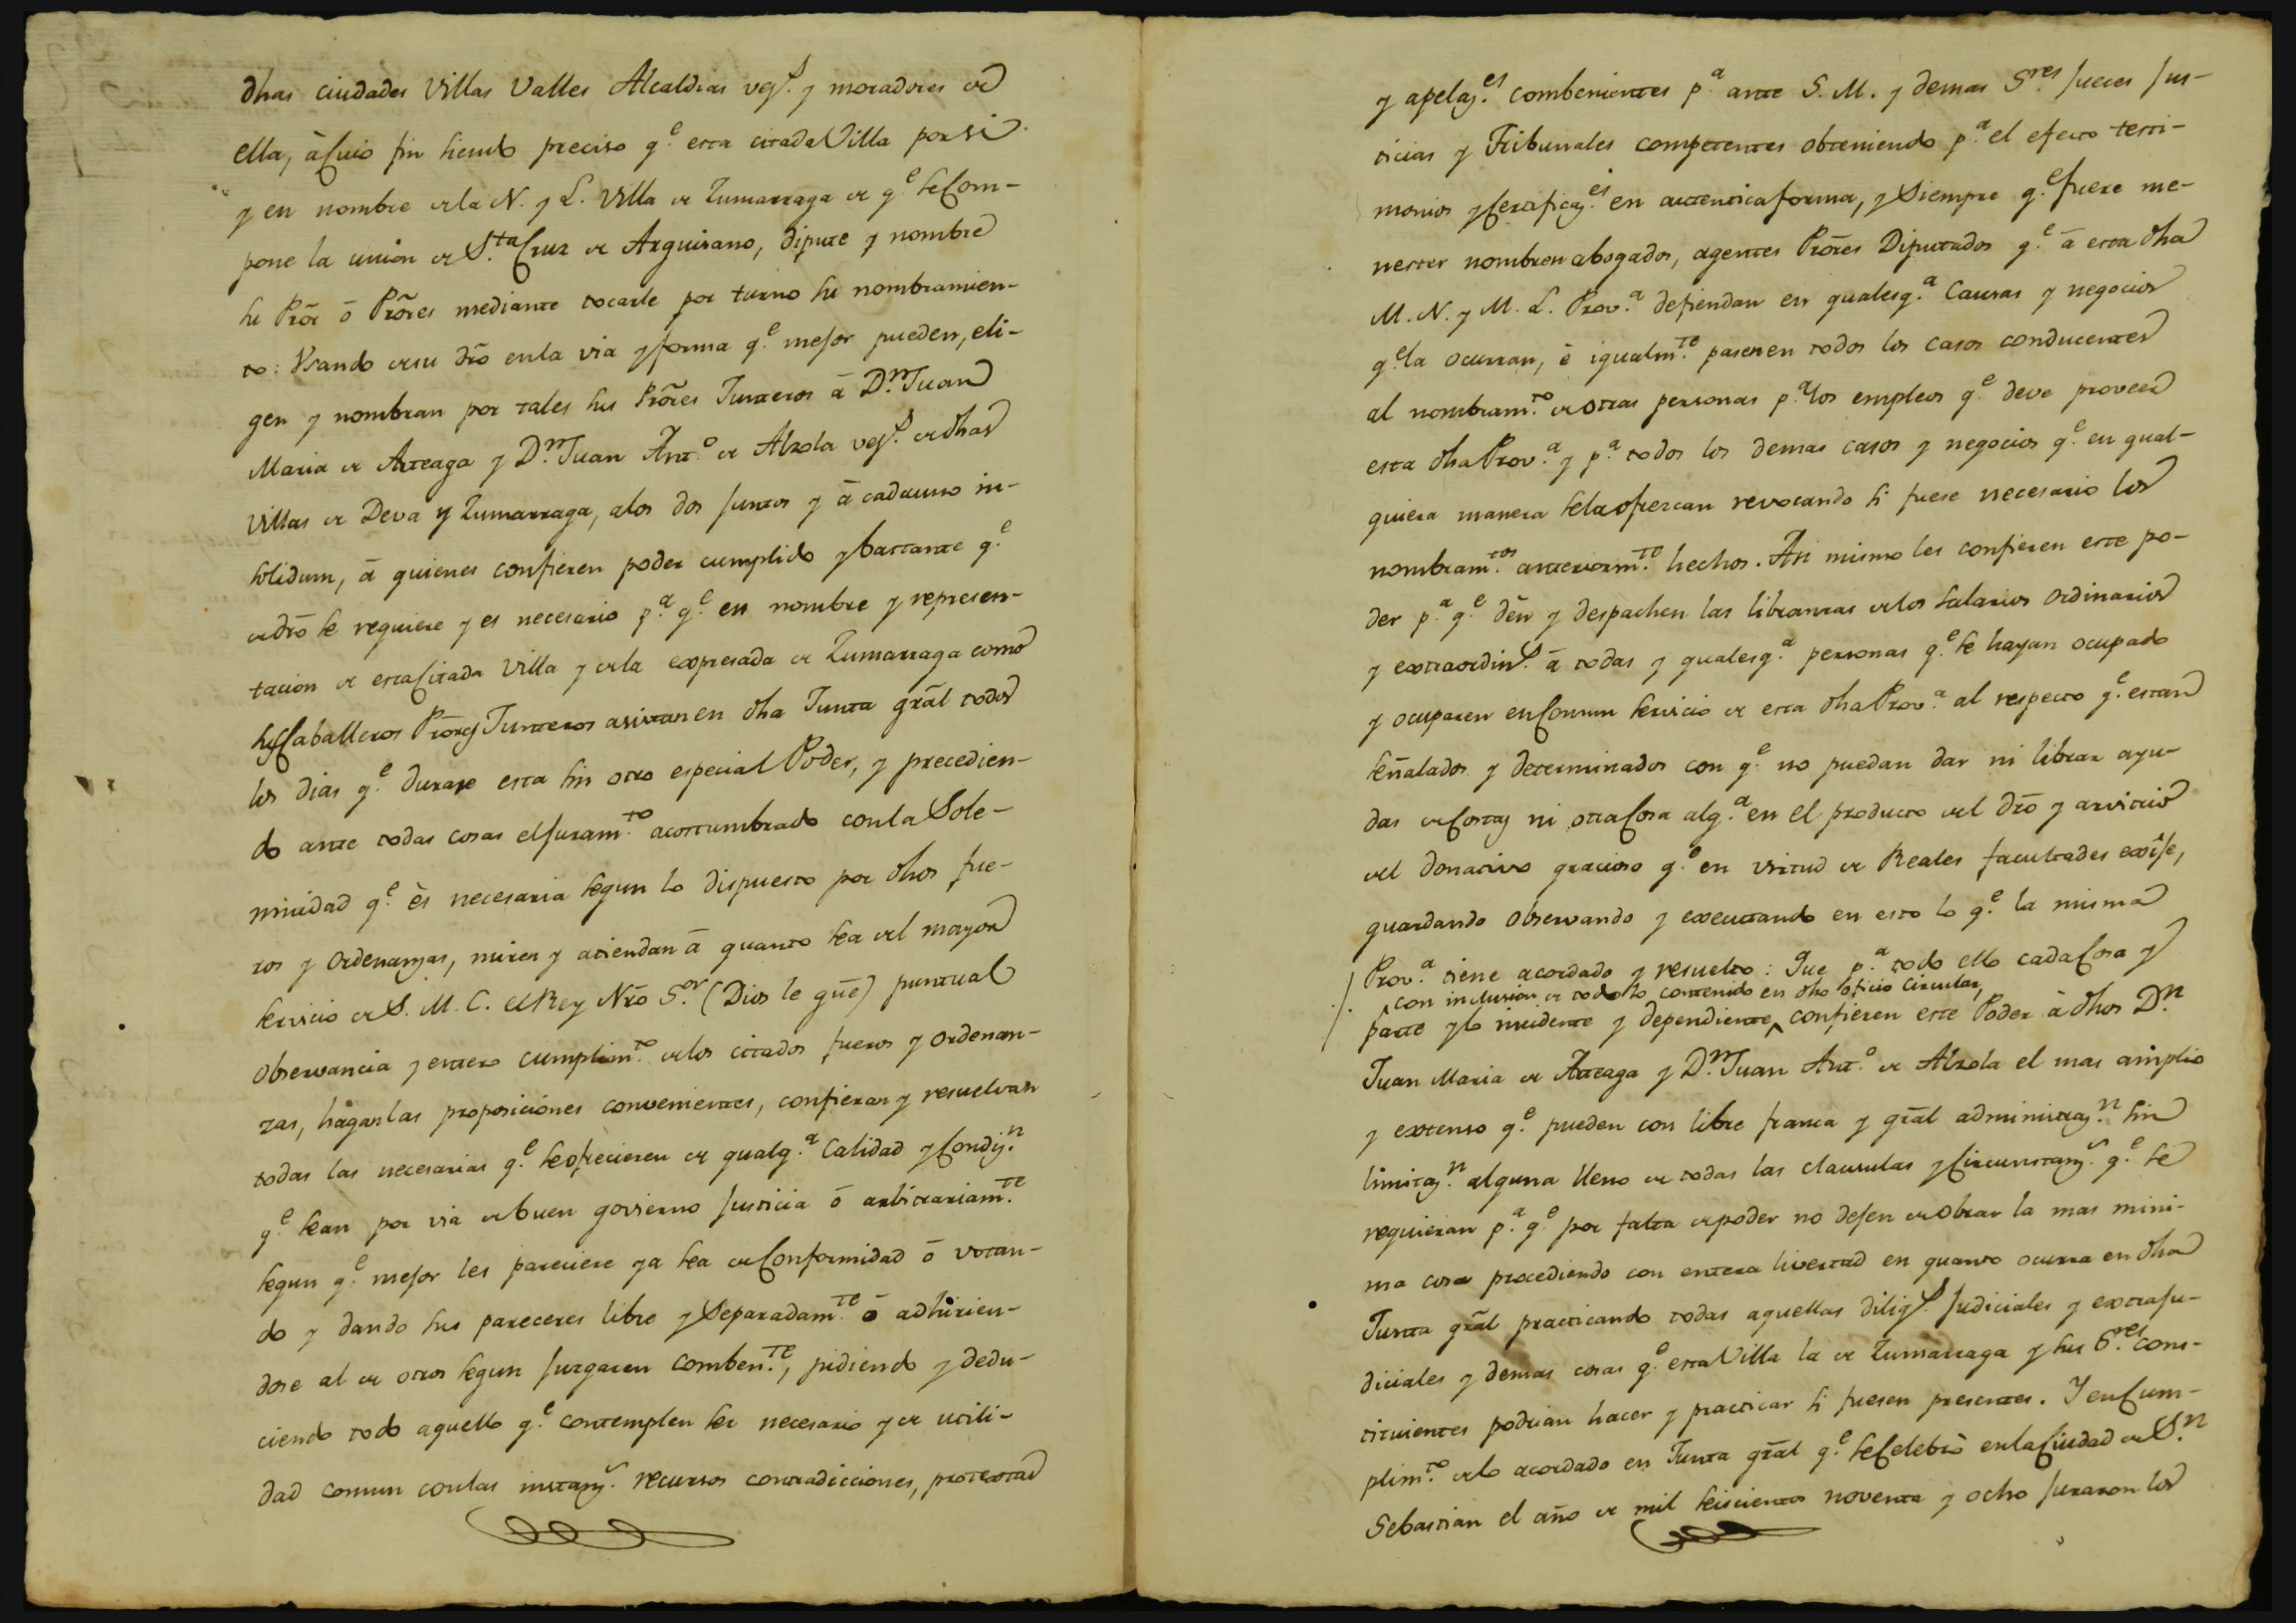 dhas ciudades Villas Valles Alcaldias vez.s y moradores de
ella, à cuio fin siendo preciso q.e esta citada Villa por si
y en nombre de la N. y L. Villa de Zumarraga de q.e se Com-
pone la union de S.ta Cruz de Arguisano, dipute y nombre
su Prõr ó Prõres mediante tocarle por turno su nombramien-
to: Usando de su dr̃o en la via y forma q.e mejor pueden, eli-
gen y nombran por tales sus Prõres Junteros á D.n Juan
Maria de Arteaga y D.n Juan Ant.o de Alzola vez.s de dhas
Villas de Deva y Zumarraga, a los dos juntos y á cada uno in-
solidum, á quienes confieren poder cumplido y bastante q.e
de dr̃o se requiere y es necesario p.a q.e en nombre y represen-
tacion de esta Citada Villa y de la expresada de Zumarraga como
sus Caballeros Prõres Junteros asistan en dha Junta gr̃al todos
los dias q.e durare esta sin otro especial Poder, y precedien-
do ante todas cosas el juram.to acostumbrado con la Sole-
mnidad q.e ès necesaria segun lo dispuesto por dhos fue-
ros y Ordenanzas, miren y atiendan á quanto sea del mayor
servicio de S. M. C. el Rey Nr̃o S.or (Dios le gũe) puntual
Observancia y entero cumplim.to de los citados fueros y Ordenan-
zas, hagan las proposiciónes convenientes, confieran y resuelvan
todas las necesarias q.e se ofrecieren de qualq.a Calidad y Condiz.n
q.e sean por via de buen govierno Justicia ó arbitrariam.te
segun q.e mejor les pareciere ya sea de Conformidad ó votan-
do y dando sus pareceres libre y Separadam.te ó adhirien-
dose al de otros segun Juzgaren Comben.te, pidiendo y dedu-
ciendo todo aquello q.e contemplen ser necesario y de utili-
dad comun con las instanz.s recursos contradicciones, protextas
y apelaz.es combenientes p.a ante S. M. y demas S.res Jueces Jus-
ticias y Tribunales competentes obteniendo p.a el efecto testi-
monios y Certificaz.es en autentica forma, y Siempre q.e fuere me-
nester nombren abogados, agentes Prõres Diputados q.e á esta dha
M. N. y M. L. Prov.a defiendan en qualesq.a Causas y negocios
q.e la ocurran, è igualm.te pasen en todos los casos conducentes
al nombram.to de otras personas p.a los empleos q.e deve proveer
esta dha Prov.a y p.a todos los demas casos y negocios q.e en qual-
quiera manera se la ofrezcan revocando si fuese necesario los
nombram.tos anteriorm.te hechos. Asi mismo les confieren este po-
der p.a q.e dèn y despachen las libranzas de los salarios Ordinarios
y extraordin.s á todas y qualesq.a personas q.e se hayan ocupado
y ocuparen en Comun servicio de esta dha Prov.a al respecto q.e estan
señalados y determinados con q.e no puedan dar ni librar ayu-
das de Costas ni otra Cosa alg.a en el producto del dr̃o y arvitrio
del donativo gracioso q.e en virtud de Reales facultades exije,
guardando Observando y executando en esto lo q.e la misma
Prov.a tiene acordado y resuelto: Que p.a todo ello cada Cosa y
con inclusion de todo lo contenido en dho oficio Circular,
parte y lo incidente y dependiente confieren este Poder à dhos D.n
Juan Maria de Arteaga y D.n Juan Ant.o de Alzola el mas amplio
y extenso q.e pueden con libre franca y gr̃al administraz.n sin
limitaz.n alguna lleno de todas las clausulas y Circunstanz.s q.e se
requieran p.a q.e por falta de poder no dejen de Obrar la mas mini-
ma cosa procediendo con entera livertad en quanto ocurra en dha
Junta gr̃al practicando todas aquellas dilig.s Judiciales y extraju-
diciales y demas cosas q.e esta Villa la de Zumarraga y sus S.res cons-
tituientes podrian hacer y practicar si fuesen presentes. Y en Cum-
plim.to de lo acordado en Junta gr̃al q.e se Celebró en la Ciudad de S.n
Sebastian el año de mil seiscientos noventa y ocho Juraron los